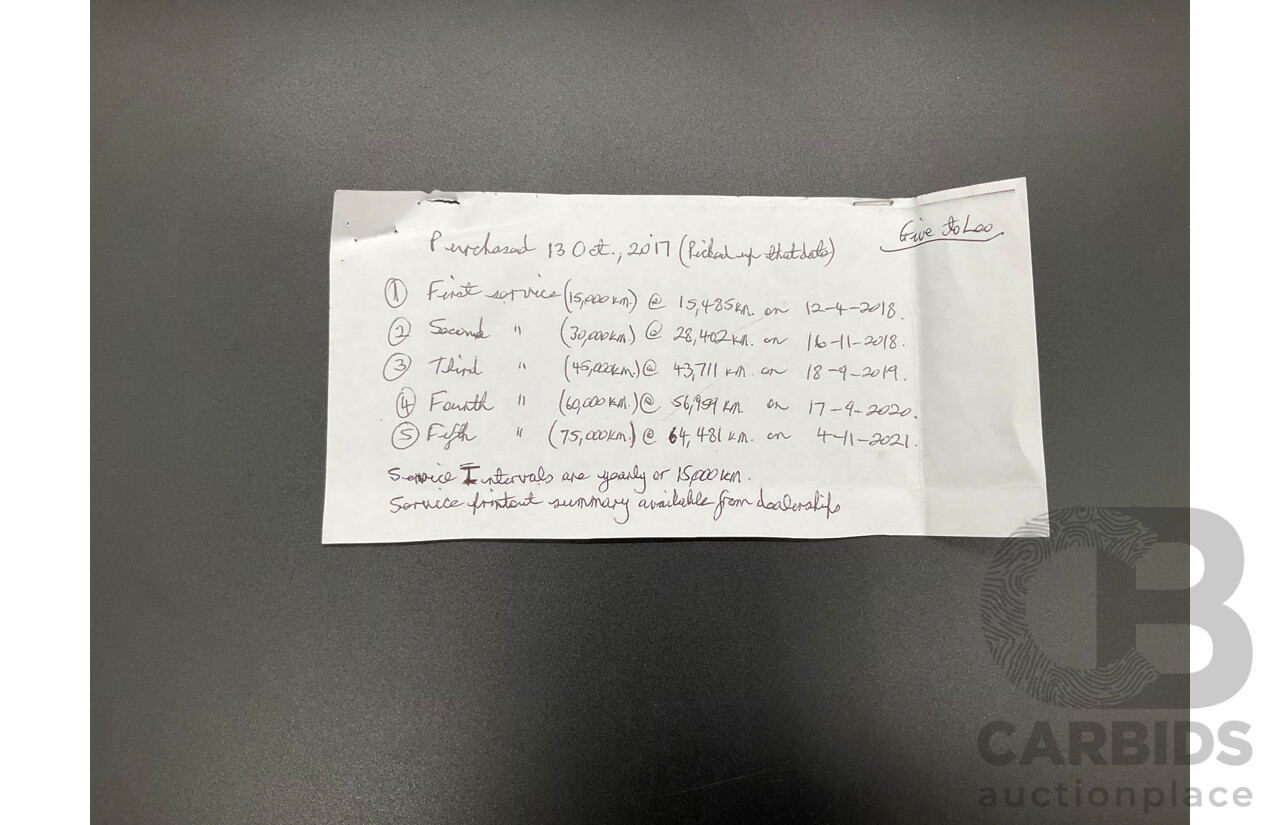 Give to Leo
Purchased 13 Oct., 2017 (Picked up that date)
① First service (15,000 km.) @ 15,485 km. on 12-4-2018.
② Second " (30,000 km.) @ 28,402 km. on 16-11-2018.
③ Third " (45,000 km.) @ 43,711 km. on 18-9-2019.
④ Fourth " (60,000 km.) @ 56,959 km. on 17-9-2020.
⑤ Fifth " (75,000 km.) @ 64,481 km. on 4-11-2021.
Service Intervals are yearly or 15,000 km.
Service printout summary available from dealerships
CB
CARBIDS
auctionplace